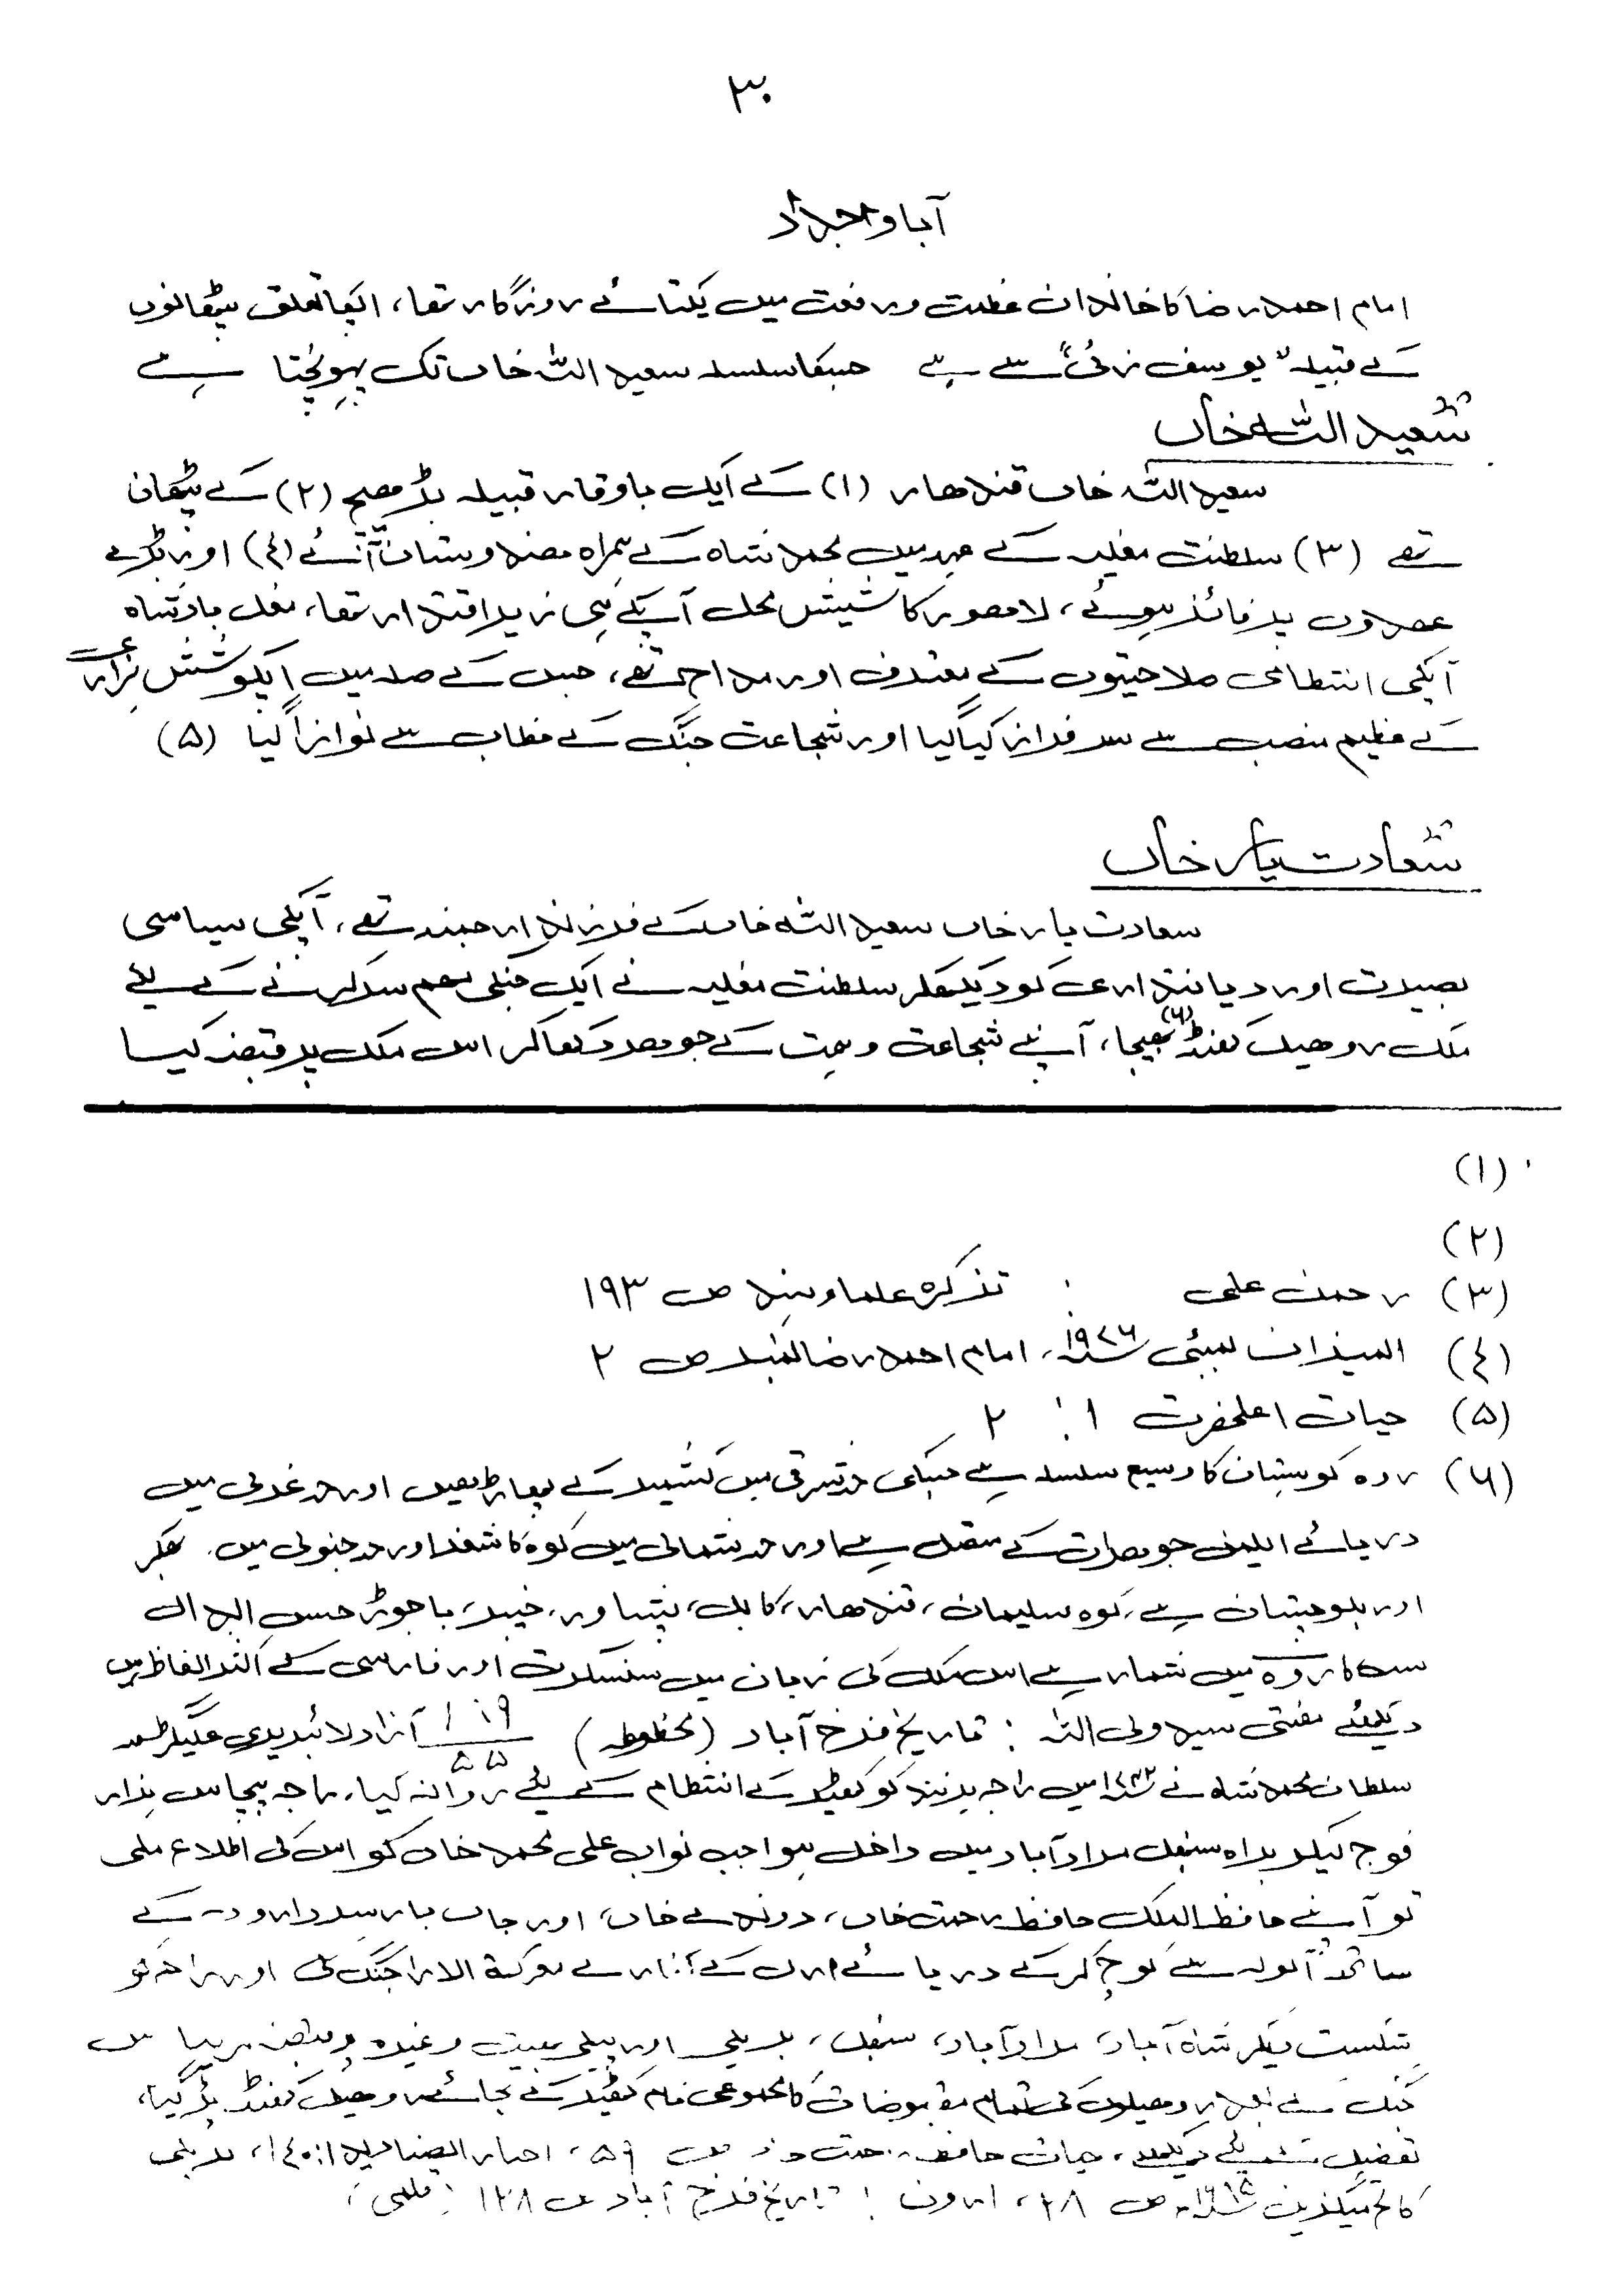 ۳۰
آبا و اجداد
امام احمد رضا کا خاندان عظمت ورفعت میں یکتائے روزگار تھا، انکا تعلق پٹھانوں
کے قبیلہ "یوسف زئی" سے ہے جسکا سلسلہ سعید اللہ خاں تک پہونچتا ہے
سعید اللہ خاں
سعید اللہ خاں قندھار (۱) کے ایک باوقار قبیلہ بڑھیچ (۲) کے پٹھان
تھے (۳) سلطنت مغلیہ کے عہد میں محمد شاہ کے ہمراہ ھندوستان آئے (٤) اور بڑے
عھدوں پر فائز ہوئے، لاھور کا شیش محل آپکے ہی زیر اقتدار تھا، مغل بادشاہ
آپکی انتظامی صلاحیتوں کے معترف اور مداح تھے، جس کے صلہ میں آپکو شش ہزاری
کے عظیم منصب سے سرفراز کیا گیا اور شجاعت جنگ کے خطاب سے نوازا گیا (۵)
سعادت یار خاں
سعادت یار خاں سعید اللہ خاں کے فرزند ارجمند تھے، آپکی سیاسی
بصیرت اور دیانتداری کو دیکھکر سلطنت مغلیہ نے ایک جنگی مھم سر کرنے کے لئے
ملک روھیل کھنڈ (٦) بھیجا، آپنے شجاعت و ہمت کے جوھر دکھا کر اس ملک پر قبضہ کیا
(۱)
(۲)
(۳) رحمن علی : تذکرہ علماء ہند ص ۱۹۳
(٤) المیزان بمبئی ۱۹۷۶، امام احمد رضا نمبر ص ۲
(۵) حیات اعلحضرت ۱ : ۲
(٦) روہ کوہستان کا وسیع سلسلہ ہے جسکی حد شرقی میں کشمیر کے پھاڑ ھیں اور حد غربی میں
دریائے ایلمن جو ھرات کے متصل ہے اور حد شمالی میں کوہ کاشغر اور حد جنوبی میں بھکر
اور بلوچستان ہے، کوہ سلیمان، قندھار، کابل، پشاور، خیبر، باجوڑ حسن ابدال
سب کا روہ میں شمار ہے اس ملک کی زبان میں سنسکرت اور فارسی کے اکثر الفاظ ہیں
دیکھئے مفتی سید ولی اللہ : تاریخ فرخ آباد (مخطوطہ) آزاد لائبریری علیگڑھ
سلطان محمد شاہ نے میں راجہ ہرنند کو کٹھیر کے انتظام کے لئے روانہ کیا، راجہ پچاس ہزار
فوج لیکر براہ سنبھل مرادآباد میں داخل ہوا جب نواب علی محمد خاں کو اس کی اطلاع ملی
تو آپنے حافظ الملک حافظ رحمت خاں، دوندے خاں، اور جاں باز سردار روہ کے
ساتھ آنولہ سے کوچ کر کے دریائے ارل کے کنارے معرکۃ الآرا جنگ کی اور راجہ کو
شکست دیکر شاہ آباد، مرادآباد، سنبھل، بریلی اور پیلی بھیت وغیرہ پر قبضہ کر لیا اس
جنگ کے بعد روھیلوں کی تمام مقبوضات کا مجموعی نام کٹھیر کے بجائے روھیل کھنڈ پڑ گیا،
تفصیل کے لئے دیکھئے، حیات حافظ رحمت خاں ص ۵۹، اخبار الصنادید ۱ : ۱٤۰، بریلی
کالج میگزین ص ۲۸، ارون : تاریخ فرخ آباد ص ۱۲۸ قلمی